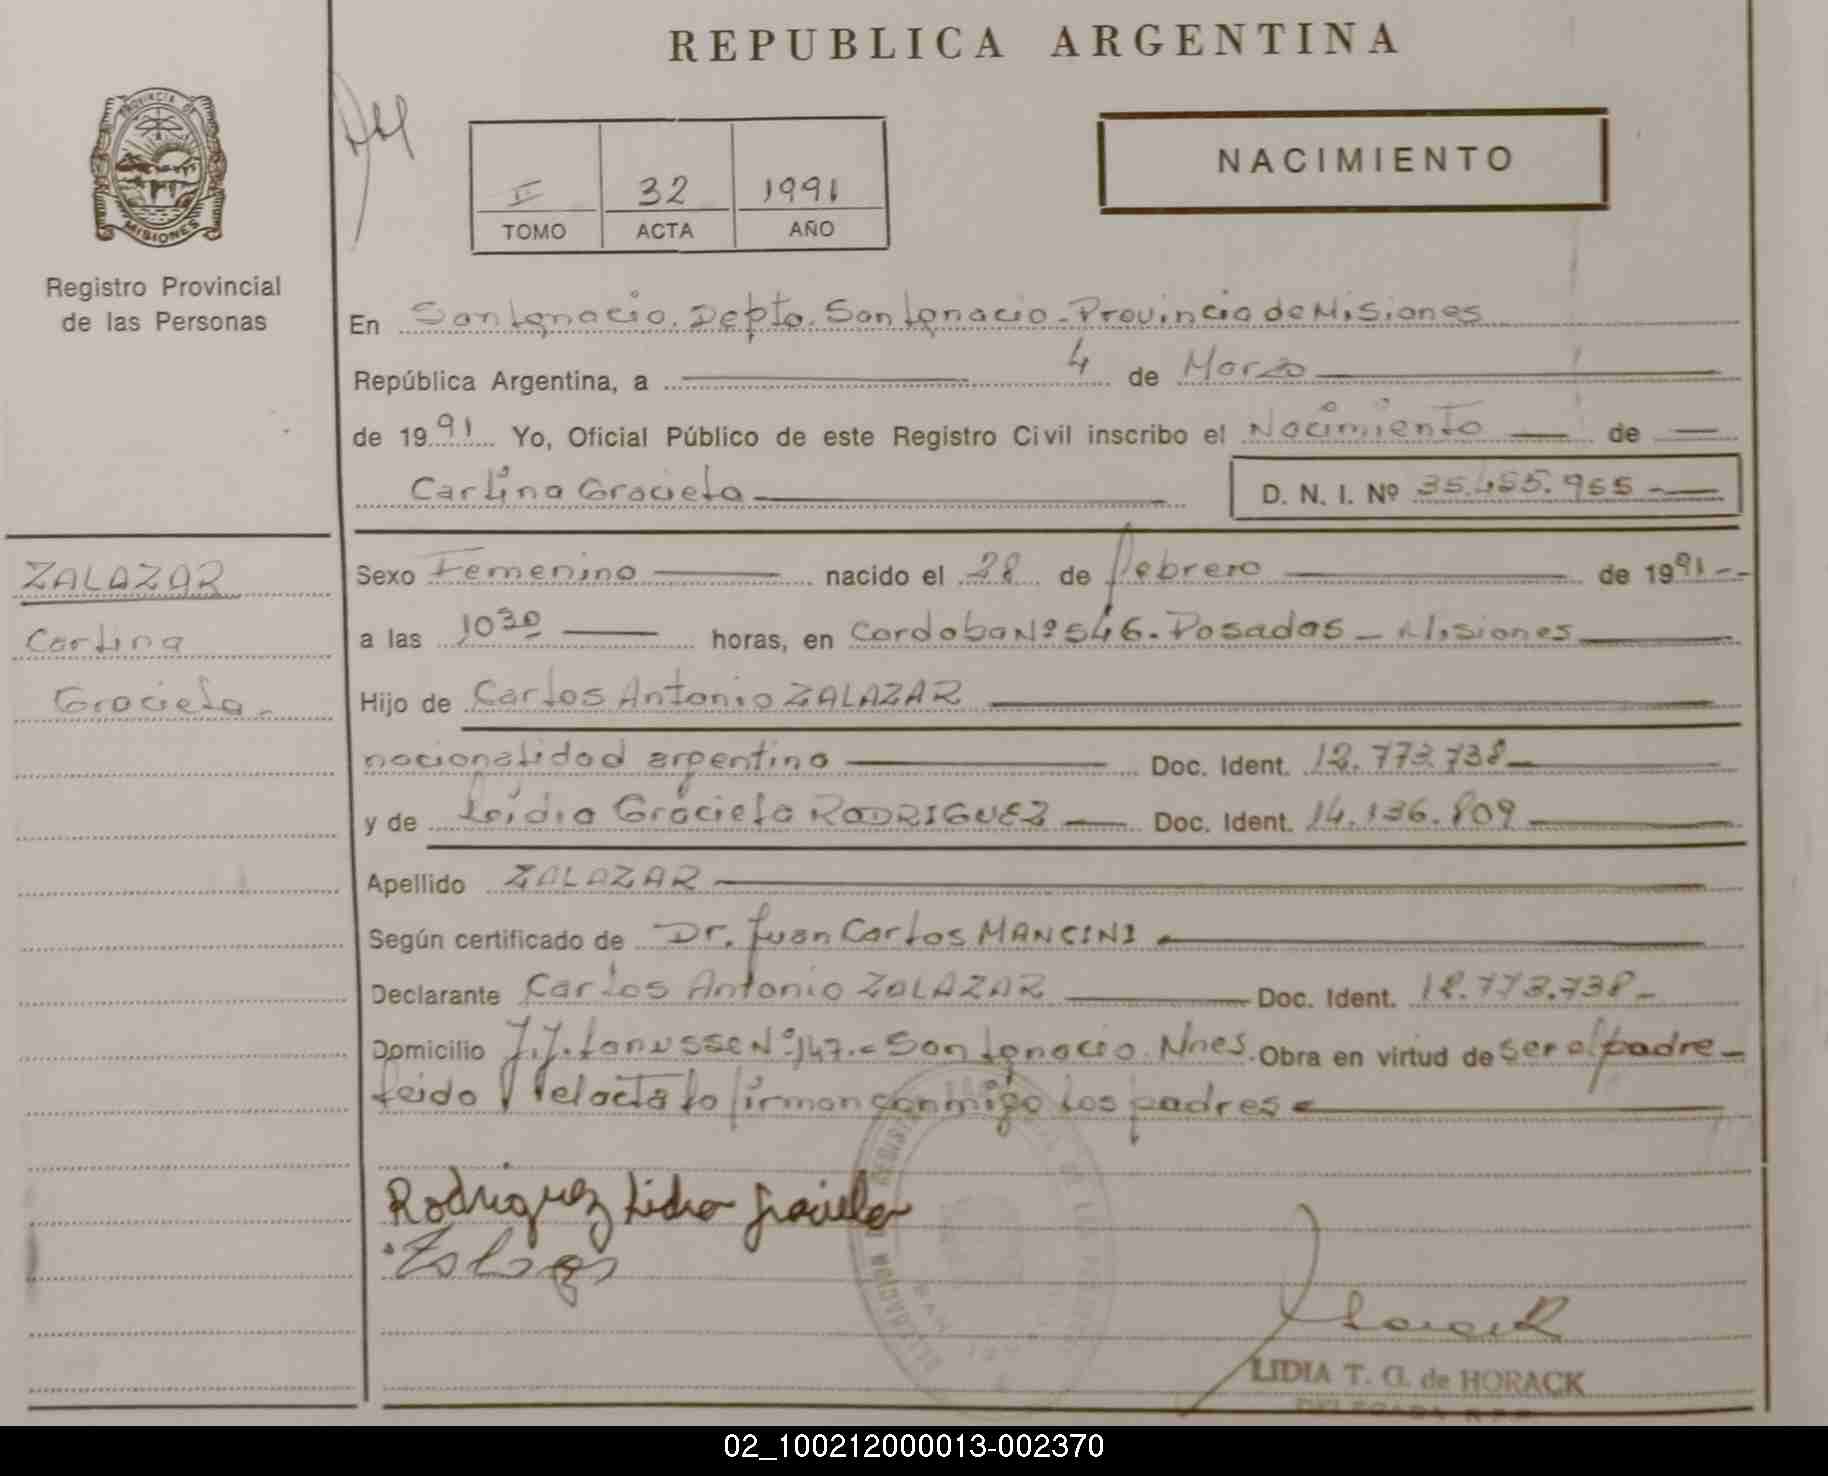 REPUBLICA ARGENTINA
PROVINCIA DE
MISIONES
Registro Provincial
de las Personas
II 32 1991
TOMO ACTA AÑO
NACIMIENTO
En San Ignacio. Depto. San Ignacio - Provincia de Misiones
República Argentina, a 4 de Marzo
de 1991 Yo, Oficial Público de este Registro Civil inscribo el Nacimiento de
Carlina Graciela D. N. I. Nº 35.455.955
ZALAZAR
Carlina
Graciela
Sexo Femenino nacido el 28 de febrero de 1991
a las 10 30 horas, en Cordoba Nº 546. Posadas - Misiones
Hijo de Carlos Antonio ZALAZAR
nacionalidad argentina Doc. Ident. 12.773.738
y de Leidia Graciela RODRIGUEZ Doc. Ident. 14.136.809
Apellido ZALAZAR
Según certificado de Dr. Juan Carlos MANCINI
Declarante Carlos Antonio ZALAZAR Doc. Ident. 12.773.738
Domicilio J.J. Lanusse Nº 147.- San Ignacio. Mnes. Obra en virtud de ser el padre
leido el acta lo firman conmigo los padres
Rodriguez Lidia Graciela
LIDIA T. G. de HORACK
DELEGADA R.P.P.
02_100212000013-002370